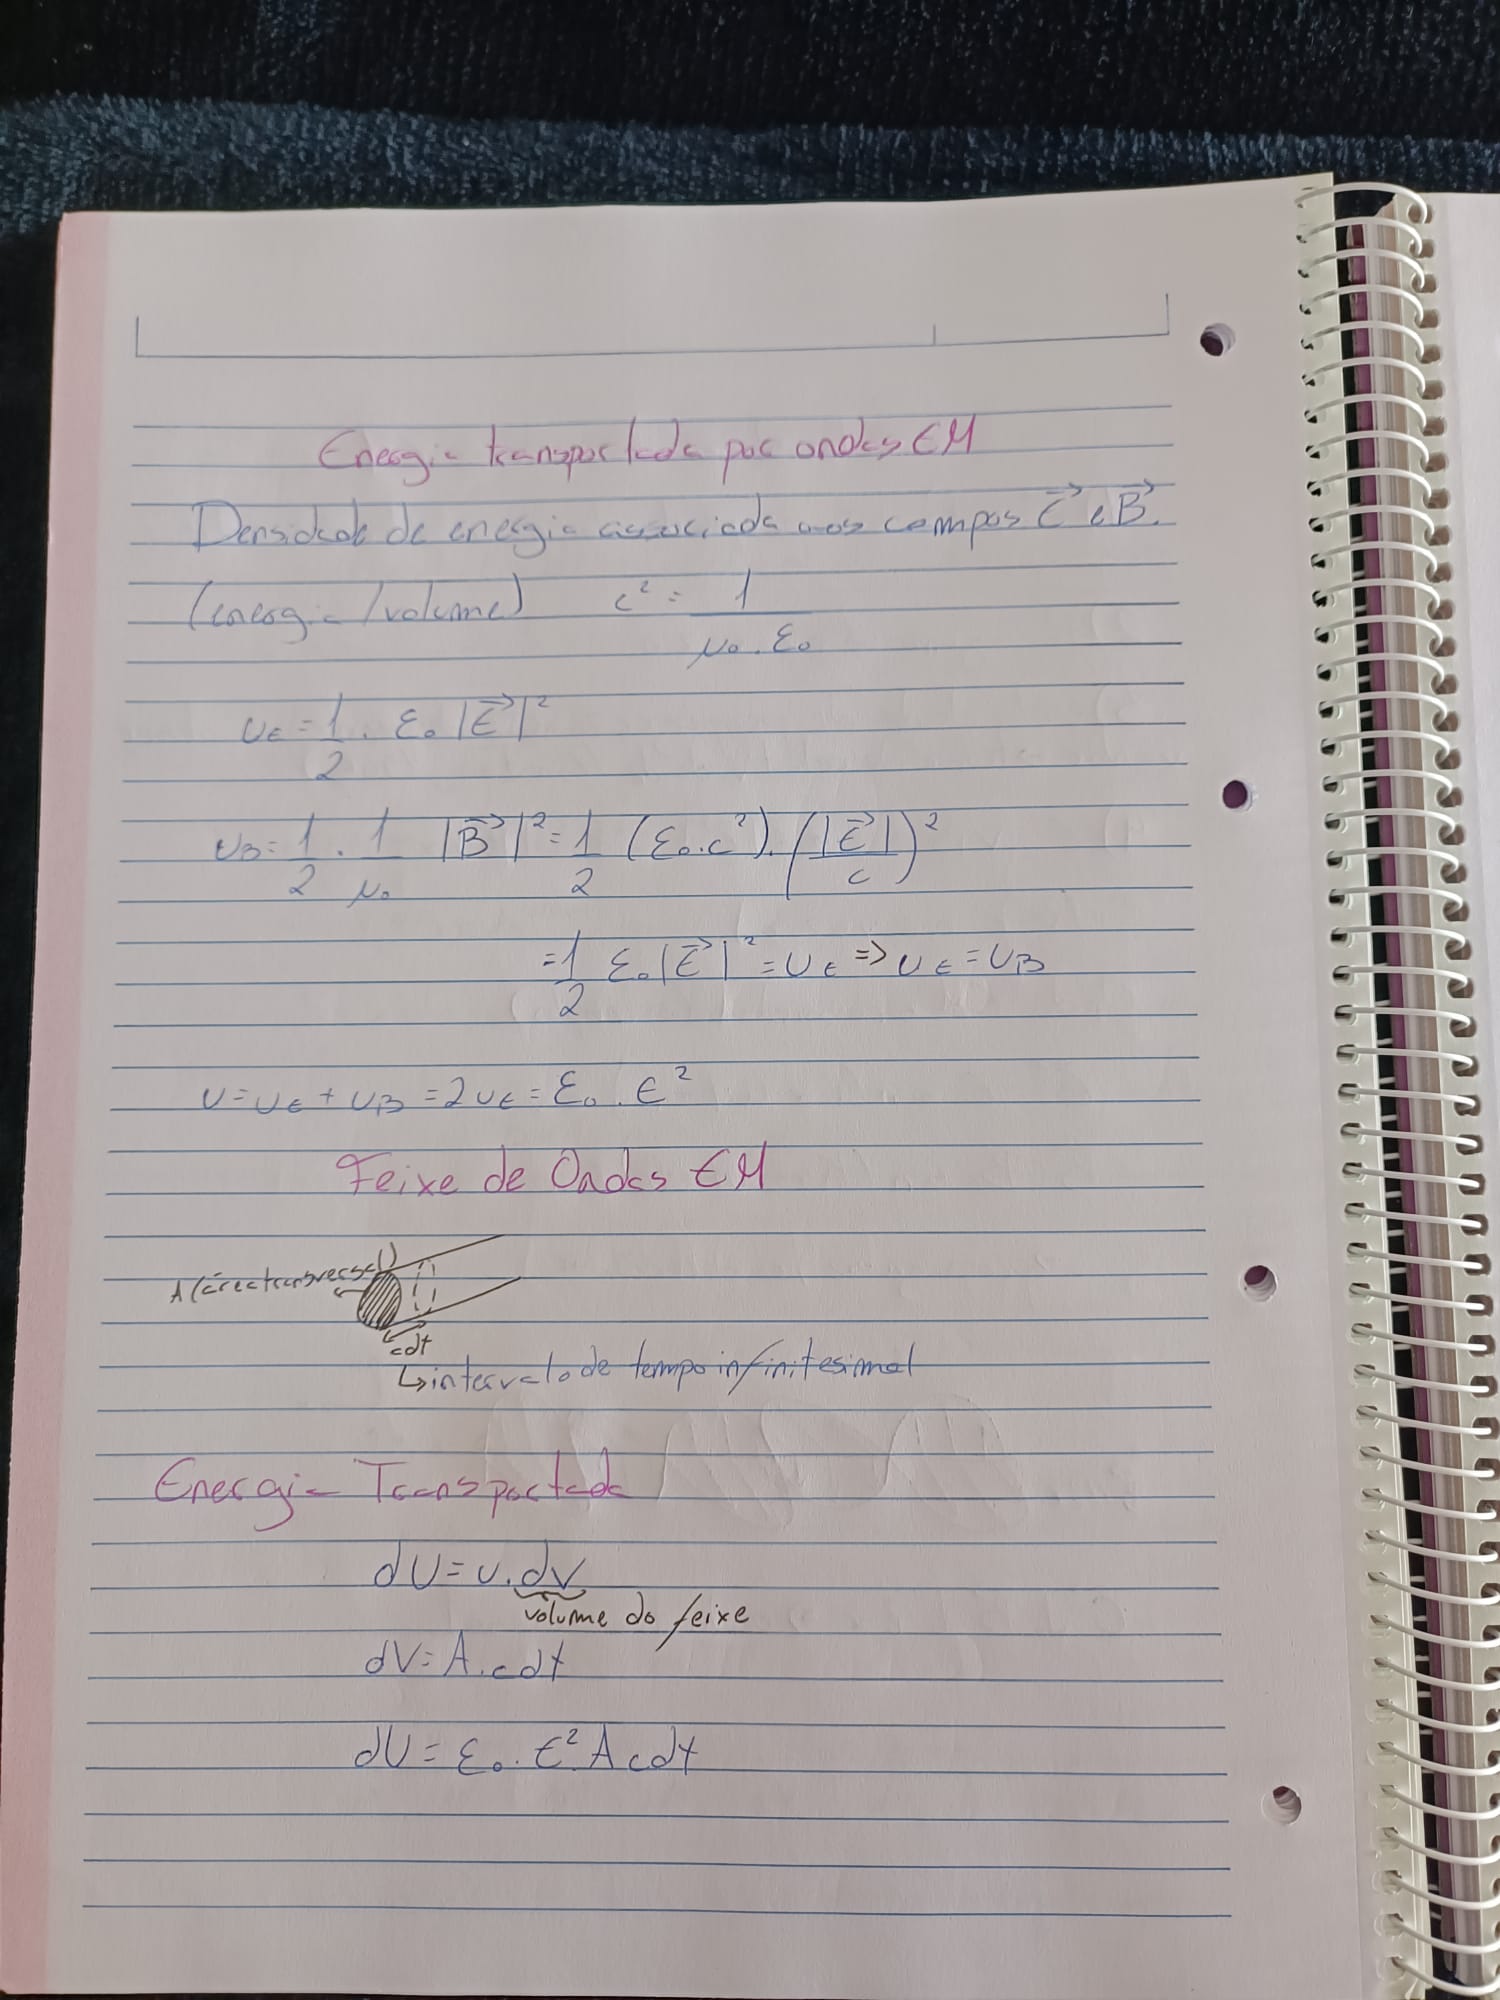 Energia transportada por ondas EM
Densidade de energia associada aos campos E⃗ e B⃗.
(energia/volume) c² = 1/(μ₀.ε₀)
u_E = 1/2 . ε₀ |E⃗|²
u_B = 1/2 . 1/μ₀ |B⃗|² = 1/2 (ε₀.c²).(|E⃗|/c)²
= 1/2 ε₀|E⃗|² = u_E => u_E = u_B
u = u_E + u_B = 2u_E = ε₀ . E²
Feixe de Ondas EM
A (área transversal)
cdt
↳ intervalo de tempo infinitesimal
Energia Transportada
dU = u.dV
volume do feixe
dV = A.cdt
dU = ε₀.E² A cdt